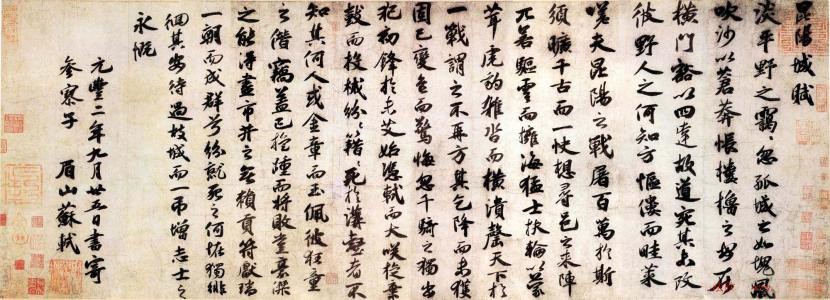 昆陽城賦
淡平野之靄〻忽孤城之如塊風
吹沙以蒼莽悵樓櫓之安在
橫門豁以四達故道宛其未改
彼野人之何知方傴僂而畦菜
嗟夫昆陽之戰屠百萬於斯
須曠千古而一快想尋邑之來陣
兀若驅雲而擁海猛士扶輪以蒙
茸虎豹雜沓而橫潰罄天下於
一戰謂之不再方其乞降而未獲
固已變色而驚悔忽千騎之獨出
犯初鋒於未艾始憑軾而大笑旋棄
鼓而投械紛〻籍〻死於溝壑者不
知其何人或金章而玉佩彼狂童
之僭竊蓋已旋踵而將敗豈豪傑
之能得盡市井之無賴貢符獻瑞
一朝而成群兮紛就死之何怪獨徘
徊其安待過故城而一弔增志士之
永慨
元豐二年九月廿五日書寄
參寥子 眉山蘇軾